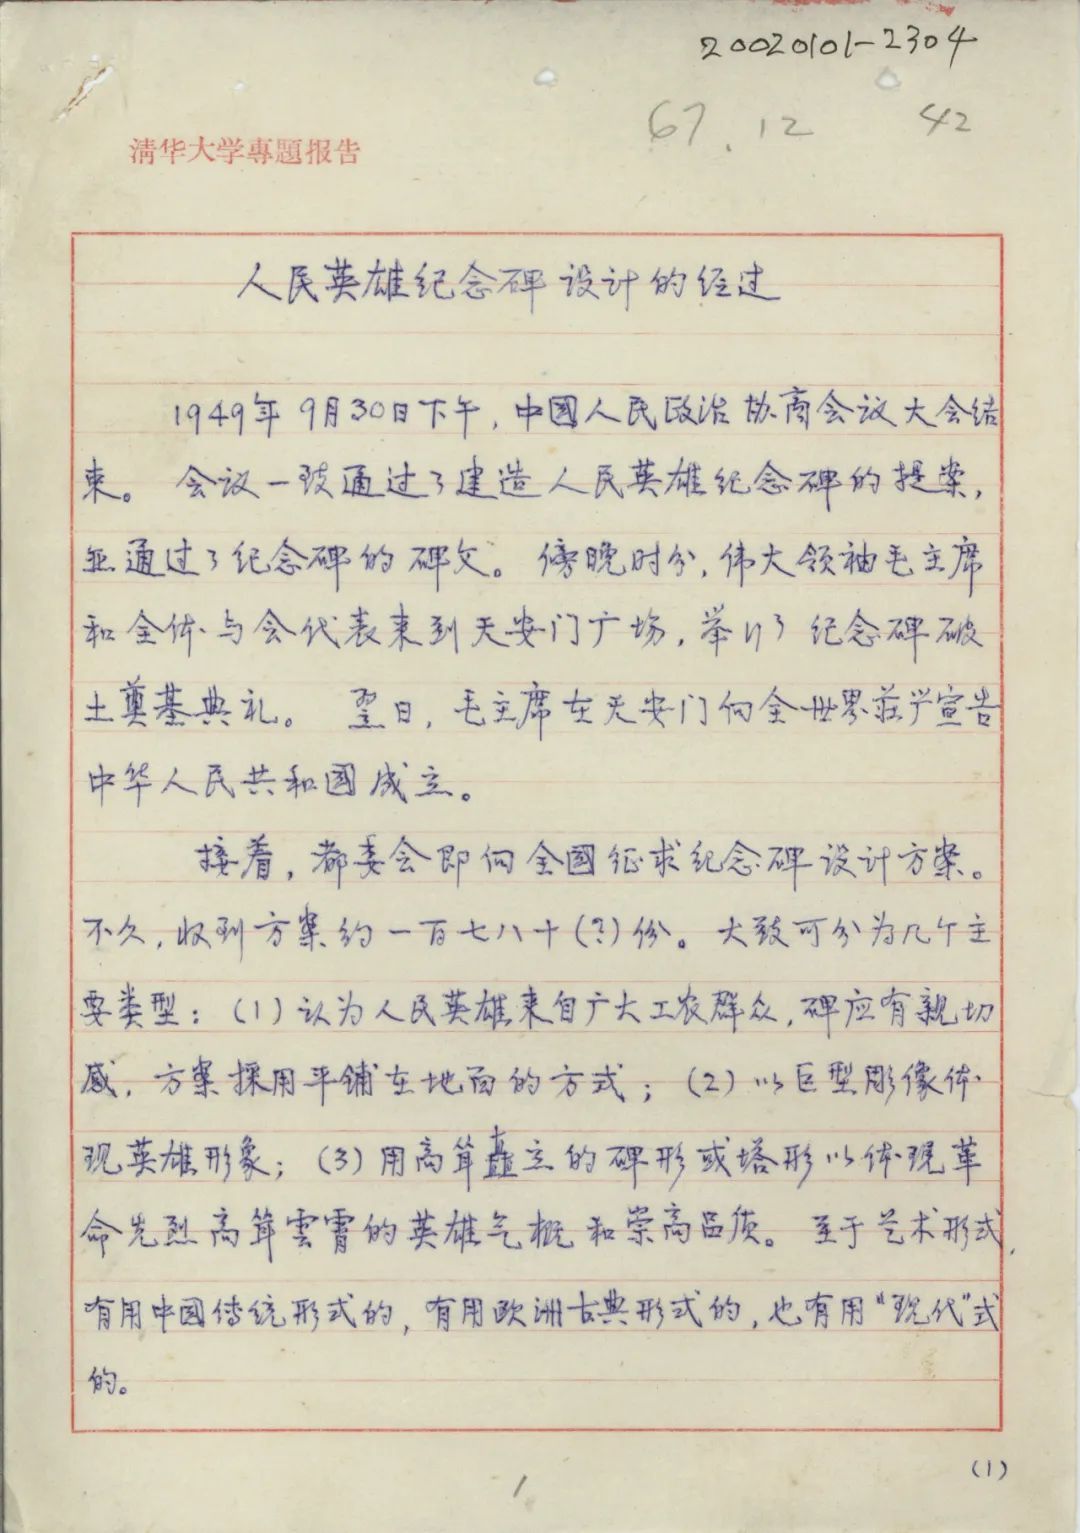 20020101-2304
67.12 42
清华大学專題报告
人民英雄纪念碑设计的经过
1949年9月30日下午,中國人民政治协商会议大会结
束。会议一致通过了建造人民英雄纪念碑的提案,
並通过了纪念碑的碑文。傍晚时分,伟大领袖毛主席
和全体与会代表来到天安门广场,举行了纪念碑破
土奠基典礼。翌日,毛主席在天安门向全世界莊严宣告
中华人民共和國成立。
接着,都委会即向全國征求纪念碑设计方案。
不久,收到方案约一百七八十(?)份。大致可分为几个主
要类型:(1)认为人民英雄来自广大工农群众,碑应有親切
感,方案採用平鋪在地面的方式;(2)以巨型彫像体
现英雄形象;(3)用高耸矗立的碑形或塔形以体现革
命先烈高耸雲霄的英雄气概和崇高品质。至于艺术形式,
有用中國传统形式的,有用欧洲古典形式的,也有用“现代”式
的。
(1)
1